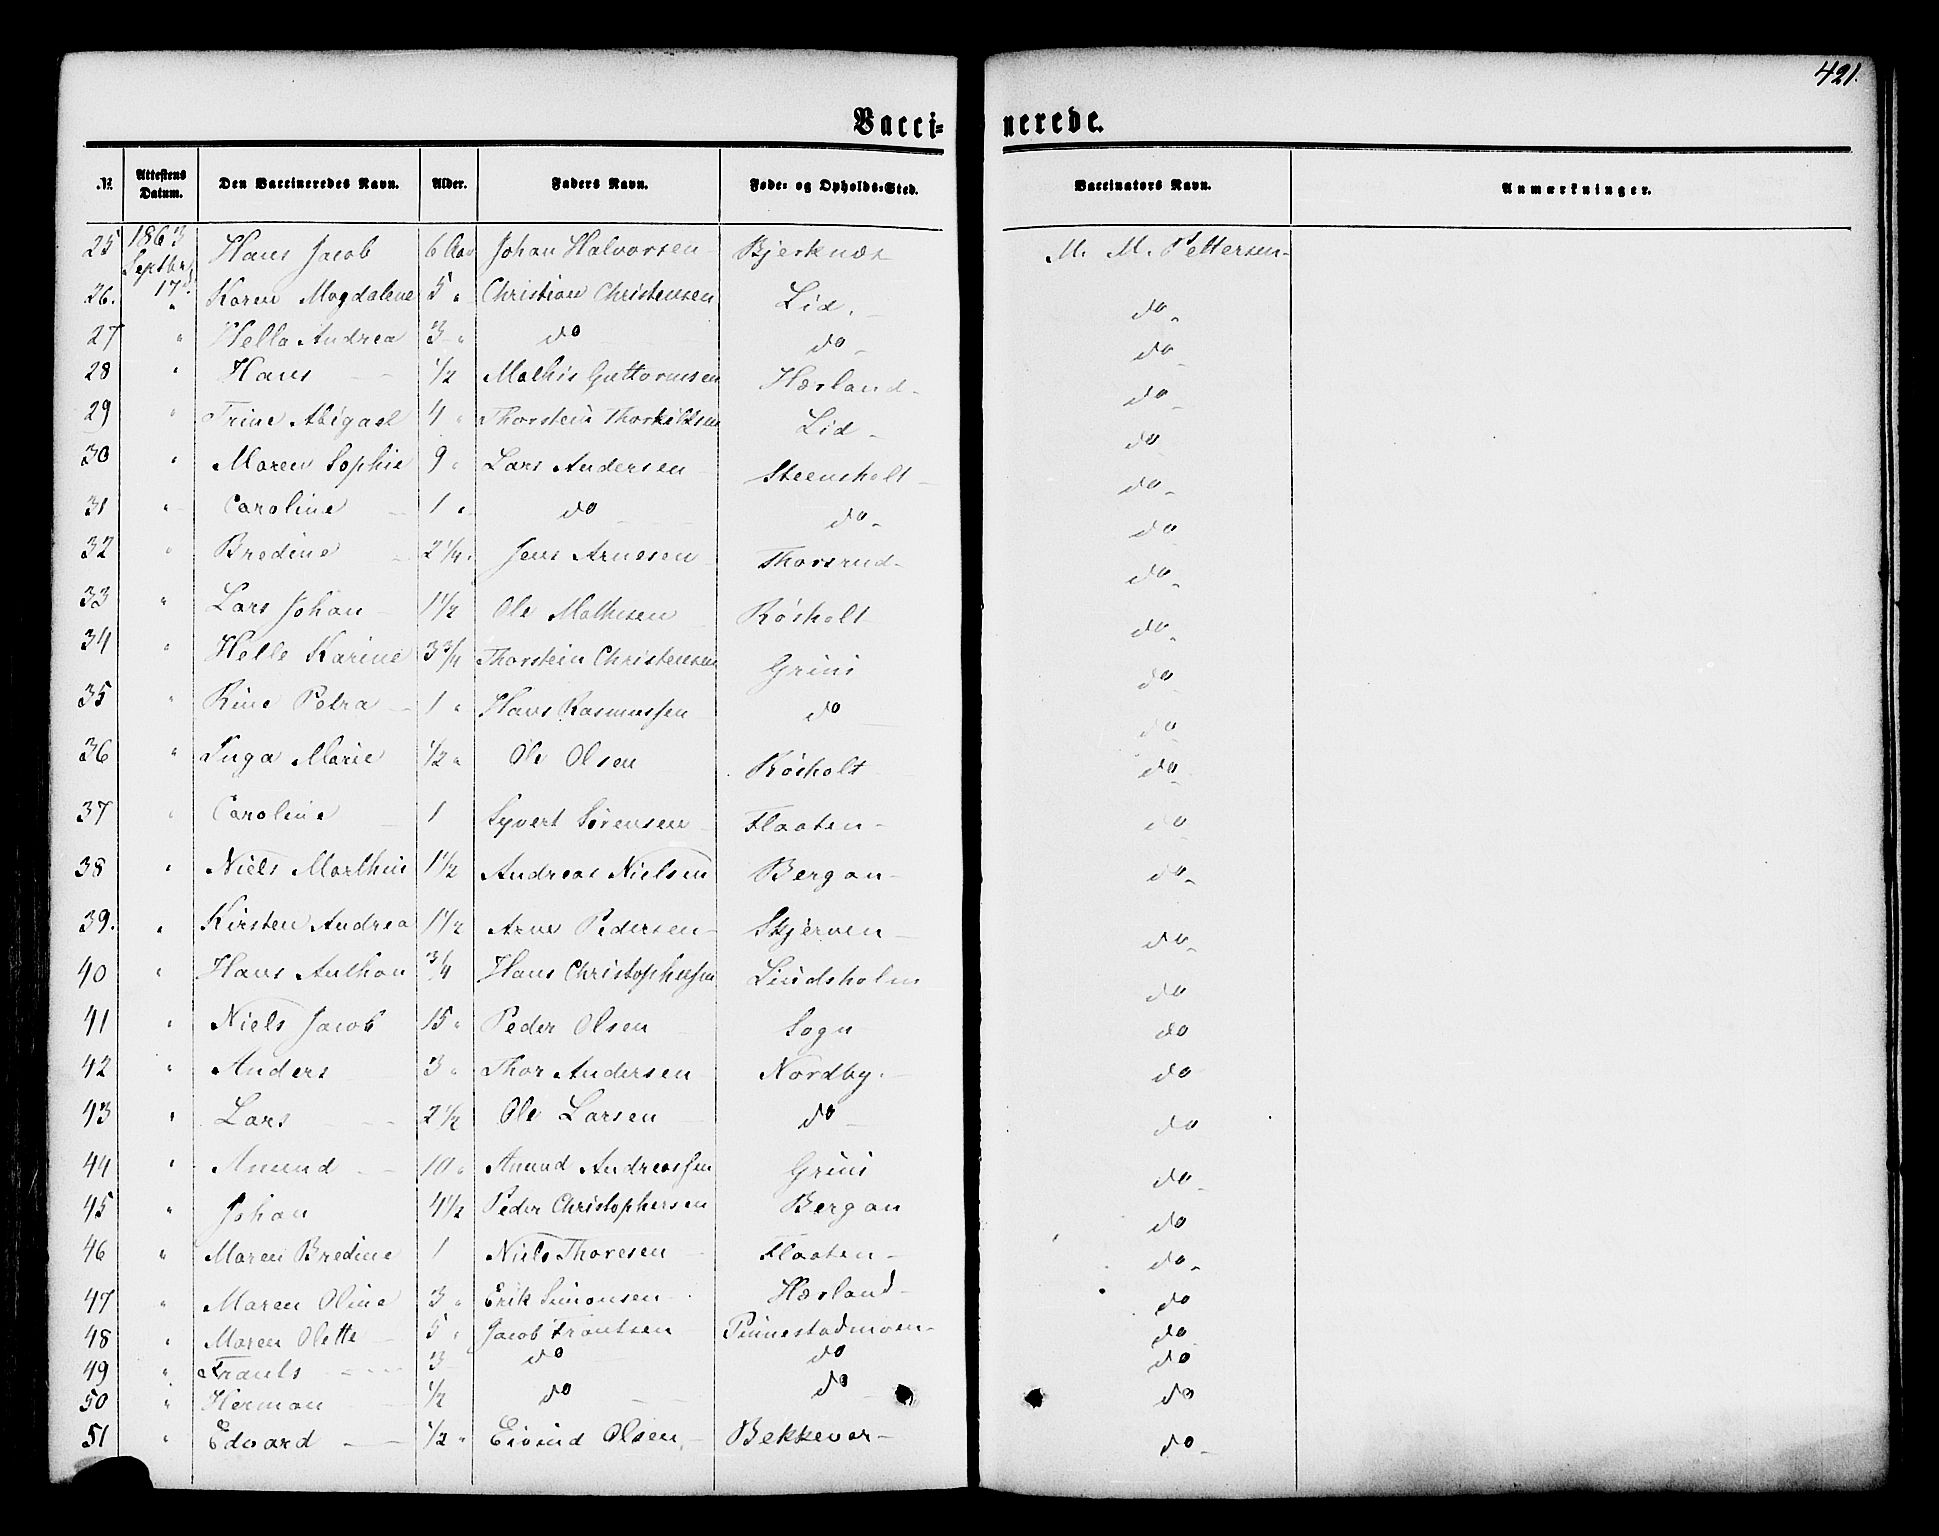 421.
Vacci- nerede.
№ Attestens Datum. Den Vaccineredes Navn. Alder. Faders Navn. Føde- og Opholds-Sted. Vaccinators Navn. Anmærkninger.
25 1863 Septbr 17 Hans Jacob 6 Aar Johan Halvorsen Bjerknæs M. M. Pettersen
26. " Karen Magdalene 5 " Christian Christensen Lid. do
27 " Hella Andrea 3 " do do do
28 " Hans 1/2 Mathis Guttormsen Hærland do
29 " Trine Abigael 4 " Thorstein Thorkildsen Lid do
30 " Maren Sophie 9 " Lars Andersen Steensholt do
31 " Caroline 1 " do do do
32 " Bredine 2 1/4 " Jens Arnesen Thorsrud do
33 " Lars Johan 1 1/2 Ole Mathisen Røsholt do
34 " Helle Karine 3 3/4 Thorstein Christensen Grini do
35 " Rine Petra 1 " Hans Rasmussen do do
36 " Inga Marie 1/2 " Ole Olsen Røsholt do
37 " Caroline 1 Syvert Sørensen Flaaten do
38 " Niels Marthin 1 1/2 Andreas Nielsen Bergan do
39. " Kirsten Andrea 1 1/2 Arne Pedersen Skjerven do
40 " Hans Anthon 3/4 Hans Christophersen Lindsholm do
41 " Niels Jacob 15 " Peder Olsen Sogn do
42 " Anders 3 " Thor Andersen Nordby. do
43 " Lars 2 1/2 Ole Larsen do do
44 " Amund 10 " Amund Andreassen Grini do
45 " Johan 4 1/2 Peder Christophersen Bergan do
46 " Maren Bredine 1 Niels Thoresen Flaaten do
47 " Maren Oline 3 " Erik Simonsen Hærland do
48 " Maren Olette 5 " Jacob Frantsen Pinnestadmoen do
49 " Frants 3 do do do
50 " Herman 1/2 do do do
51 " Edvard 1/2 " Eivind Olsen Bekkevar do